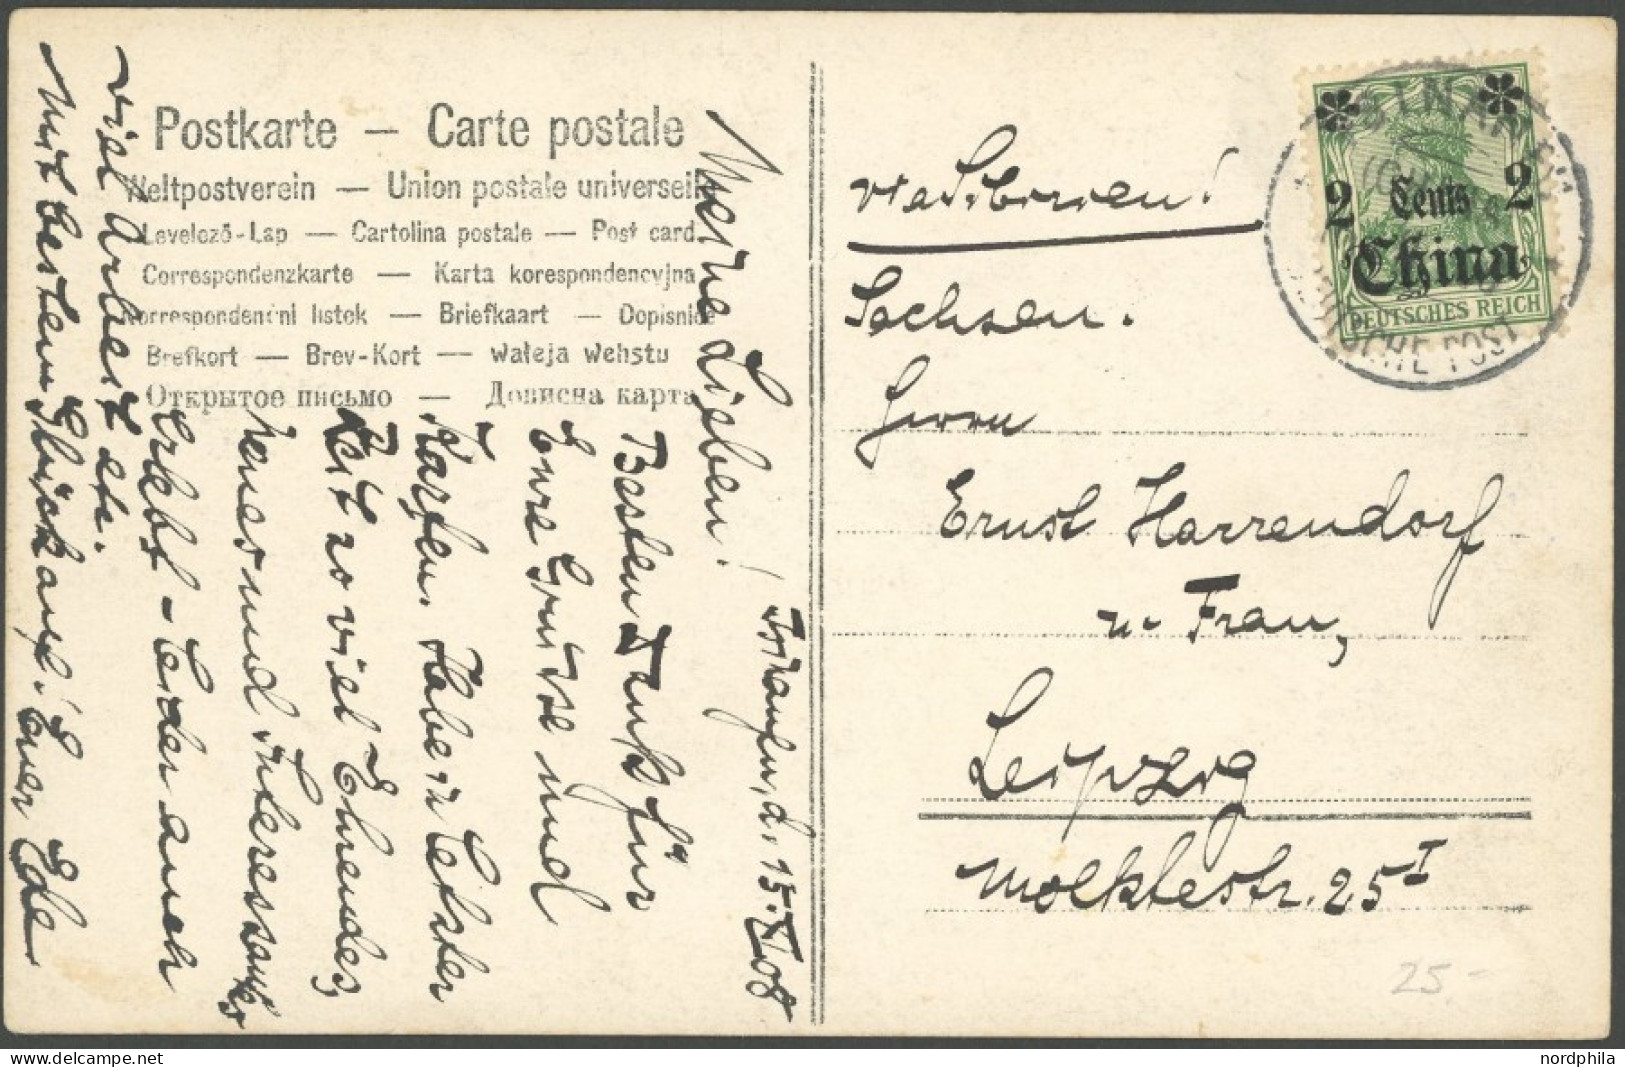 Postkarte — Carte postale
Weltpostverein — Union postale universelle
Levelező-Lap — Cartolina postale — Post card.
Correspondenzkarte — Karta korespondencyjna
Korrespondenční lístek — Briefkaart — Dopisnice
Brefkort — Brev-Kort — Wałeja Wehstu
Открытое письмо — Дописна карта
Meine Lieben!
d. 15.X.08
Besten Dank für
Eure Grüsse und
Karten. Habe in letzter
Zeit so viel Ehrendes,
Neues und Interessantes
erlebt - leider auch
viel Arbeit etc.
Mit bestem Glückauf! Euer Ede
via Sibirien!
Sachsen.
Herrn
Ernst Harrendorf
u. Frau,
Leipzig
Moltkestr. 25 I
2 Cents 2
China
DEUTSCHES REICH
DEUTSCHE POST
25.-
nordphila